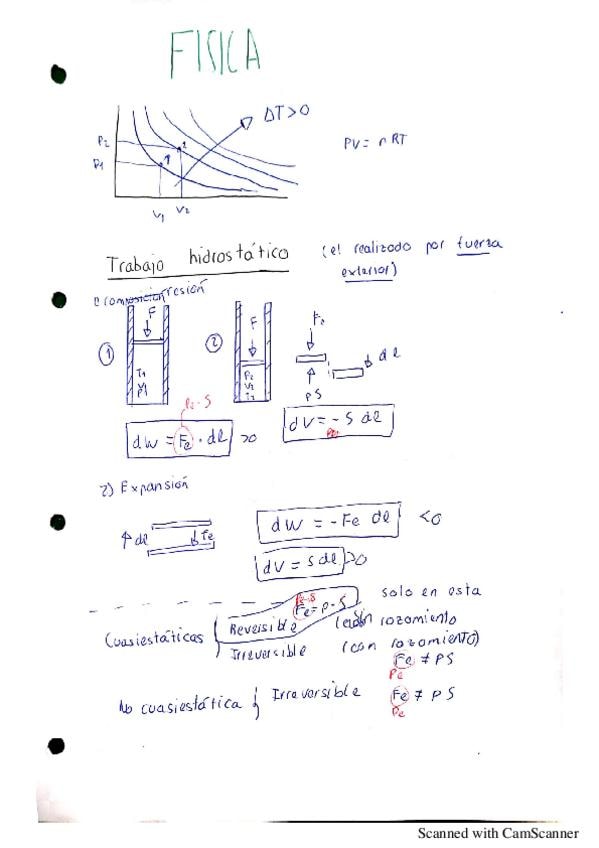 FISICA
ΔT>0
P2
P1
2
1
V1 V2
PV = nRT
Trabajo hidrostático (el realizado por fuerza exterior)
F
F
Fe
1
2
dl
T1
V1
P1
P2
V2
T2
pS
Pe·S
dW = Fe · dl >0
dV = - S dl
Pe
2) Expansión
dl
Fe
dW = -Fe dl <0
dV = S dl >0
Pe·S
Fe = p·S solo en esta
Cuasiestáticas { Reversible rozamiento
Irreversible (con rozamiento)
Fe ≠ PS
Pe
No cuasiestática { Irreversible Fe ≠ PS
Pe
Scanned with CamScanner